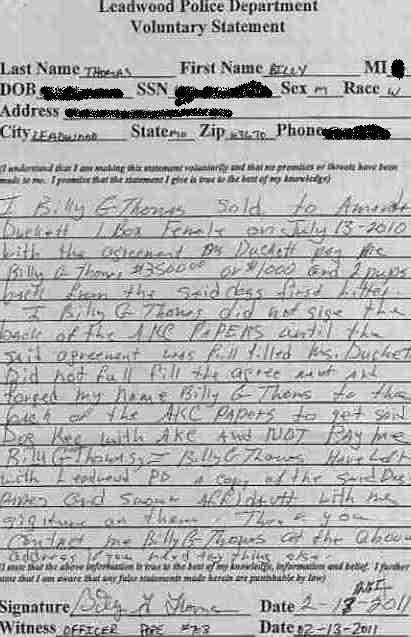 Leadwood Police Department
Voluntary Statement
Last Name THOMAS First Name BILLY MI
DOB SSN Sex M Race W
Address
City LEADWOOD State MO Zip 63670 Phone
(I understand that I am making this statement voluntarily and that no promises or threats have been
made to me. I promise that the statement I give is true to the best of my knowledge)
I Billy G Thomas Sold to Amanda
Duckett 1 Box Female on July 13-2010
with the agreement Ms Duckett pay me
Billy G Thomas $3500.00 or $1000 and 2 pups
back from the said dogs first litter.
I Billy G Thomas did not sign the
back of the AKC PAPERS until the
said agreement was full filled Ms. Duckett
Did not full fill the agreement and
forged my name Billy G Thoms to the
back of the AKC PAPERS to get said
Dog Reg with AKC AND NOT PAY me
Billy G Thomas, I Billy G Thomas Have Left
with Leadwood PD a copy of the said Dog
Papers and with my
signature on them. Thank you
Contact me Billy G Thomas at the above
address if you need any thing else.
(I state that the above information is true to the best of my knowledge, information and belief. I further
state that I am aware that any false statements made herein are punishable by law)
Signature Billy G Thomas Date 2-13 2011
Witness OFFICER POPE #723 Date 02-13-2011